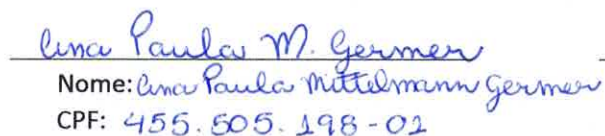 Ana Paula M. Germer
Nome: Ana Paula Mittelmann Germer
CPF: 455.505.198-02